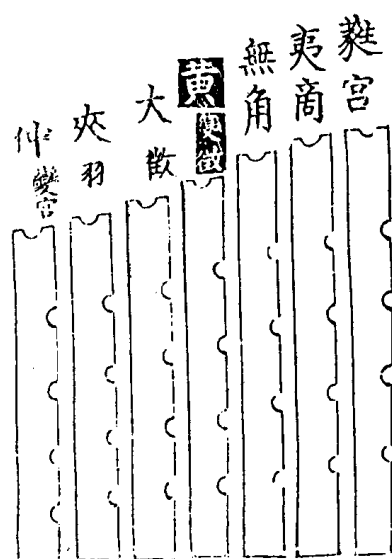 蕤宮
夷商
無角
黄變徵
大徵
夾羽
仲變宮